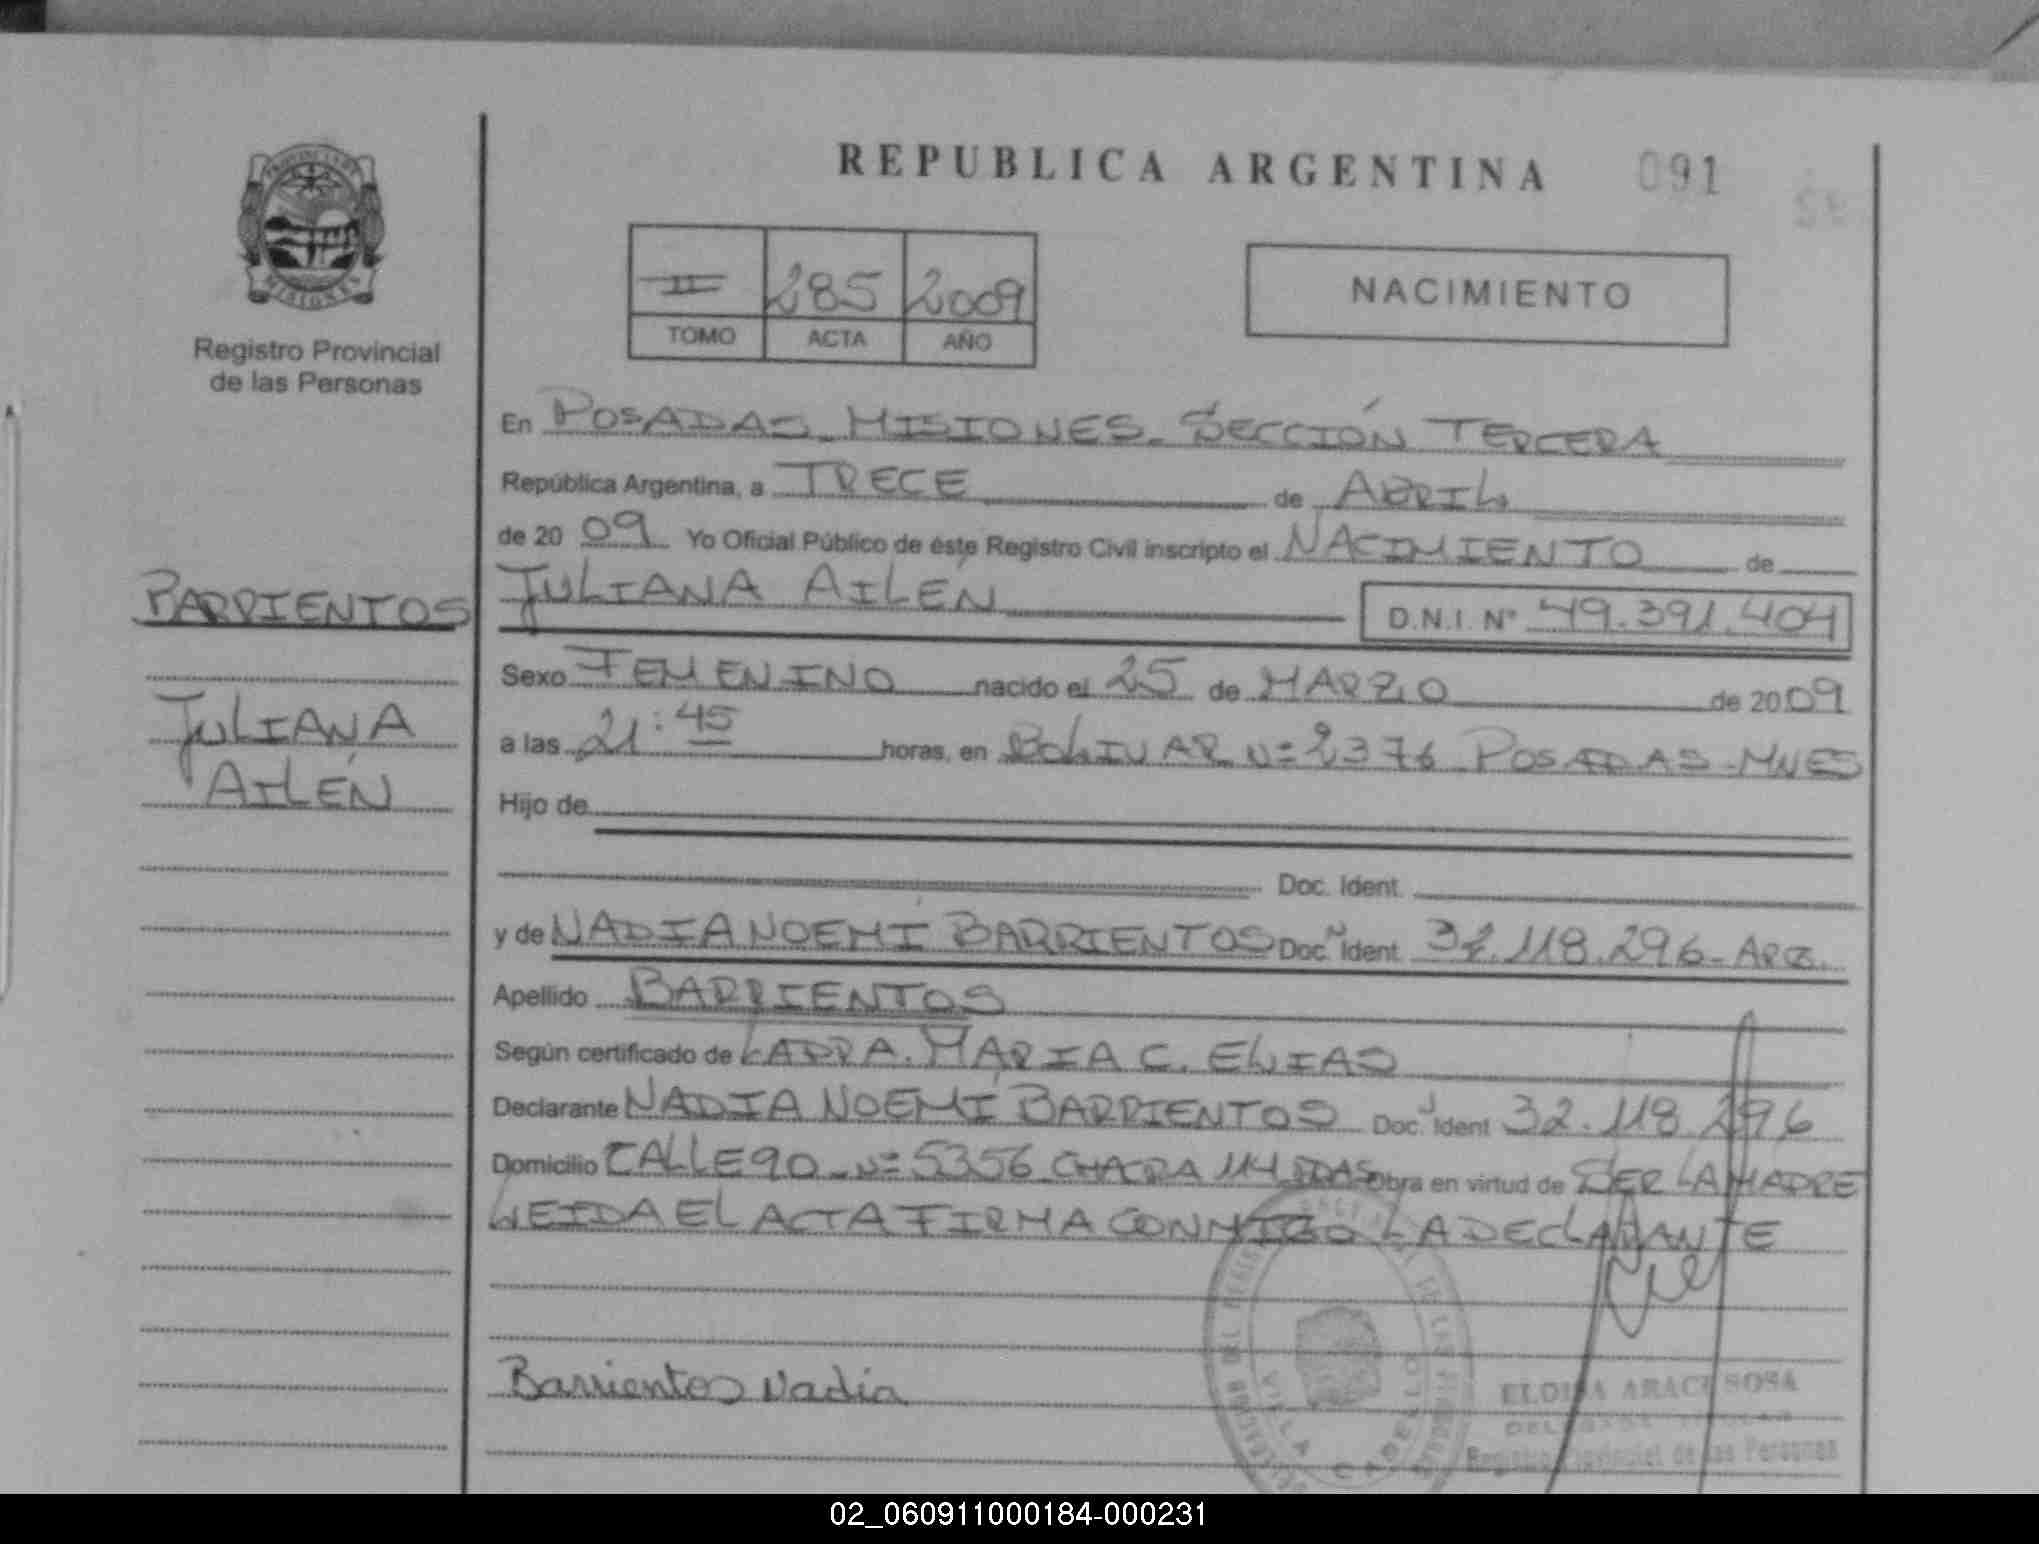 REPUBLICA ARGENTINA 091
PROVINCIA DE
MISIONES
Registro Provincial
de las Personas
II 285 2009
TOMO ACTA AÑO
NACIMIENTO
En POSADAS - MISIONES - SECCIÓN TERCERA
República Argentina, a TRECE de ABRIL
de 20 09 Yo Oficial Público de éste Registro Civil inscripto el NACIMIENTO de
BARRIENTOS
JULIANA AILÉN D.N.I. Nº 49.391.404
Sexo FEMENINO nacido el 25 de MARZO de 20 09
JULIANA
AILÉN
a las 21:45 horas, en BOLIVAR Nº 2376 POSADAS - MNES
Hijo de
Doc. Ident.
y de NADIA NOEMÍ BARRIENTOS Doc. Ident. 32.118.296 - ARG.
Apellido BARRIENTOS
Según certificado de LA DRA. MARIA C. ELIAS
Declarante NADIA NOEMÍ BARRIENTOS Doc. Ident 32.118.296
Domicilio CALLE 90 - Nº 5356 CHACRA 114 PDAS Obra en virtud de SER LA MADRE
LEIDA EL ACTA FIRMA CONMIGO LA DECLARANTE
Barrientos Nadia
VILLA CABELLO
ELOISA ARACI SOSA
Registro Provincial de las Personas
02_060911000184-000231